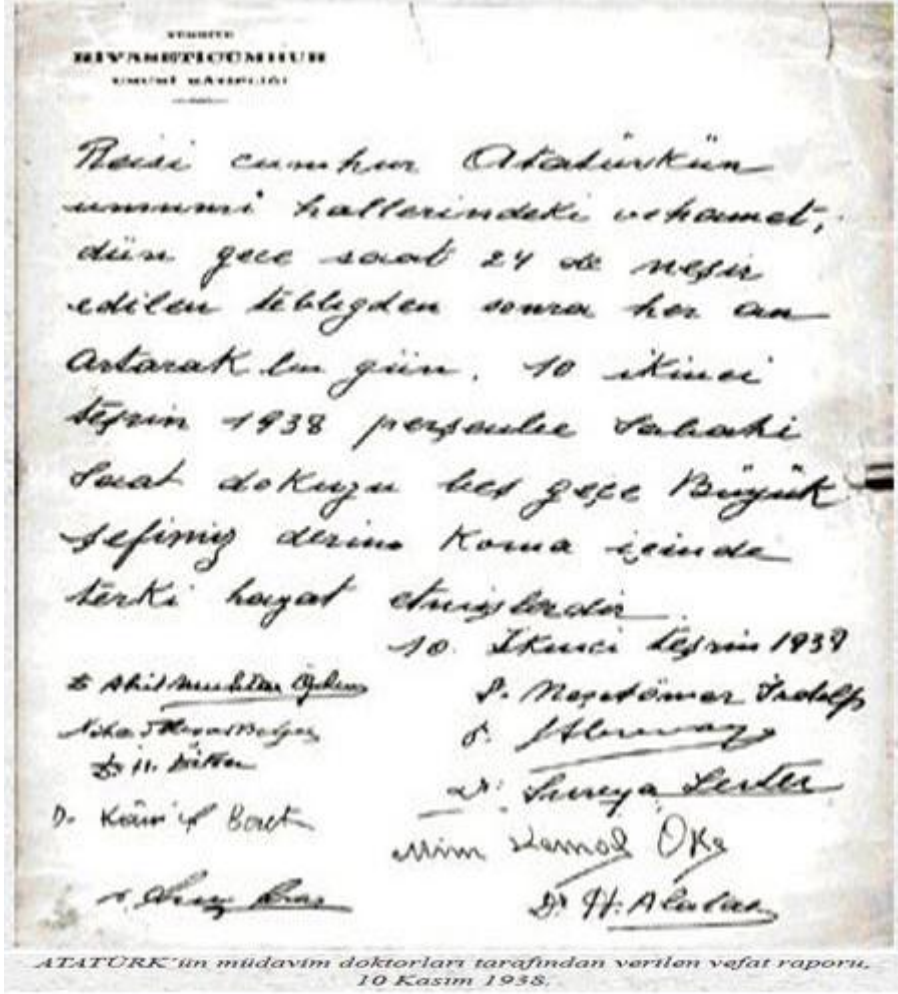 TÜRKİYE
RİYASETİCÜMHUR
UMUMÎ KÂTİPLİĞİ
Reisi cumhur Atatürkün
umumi hallerindeki vehamet,
dün gece saat 24 de neşir
edilen tebliğden sonra her an
Artarak bu gün, 10 ikinci
teşrin 1938 perşembe sabahi
Saat dokuzu beş geçe Büyük
şefimiz derin Koma içinde
terki hayat etmişlerdir.
10. İkinci teşrin 1938
Dr Akil Muhtar Özden
Dr. Neşet Ömer İrdelp
Dr.
Dr. Süreya Serter
D. Kâmil Beret
Mim Kemal Öke
Dr H. Alataş
ATATÜRK'ün müdavim doktorları tarafından verilen vefat raporu,
10 Kasım 1938.